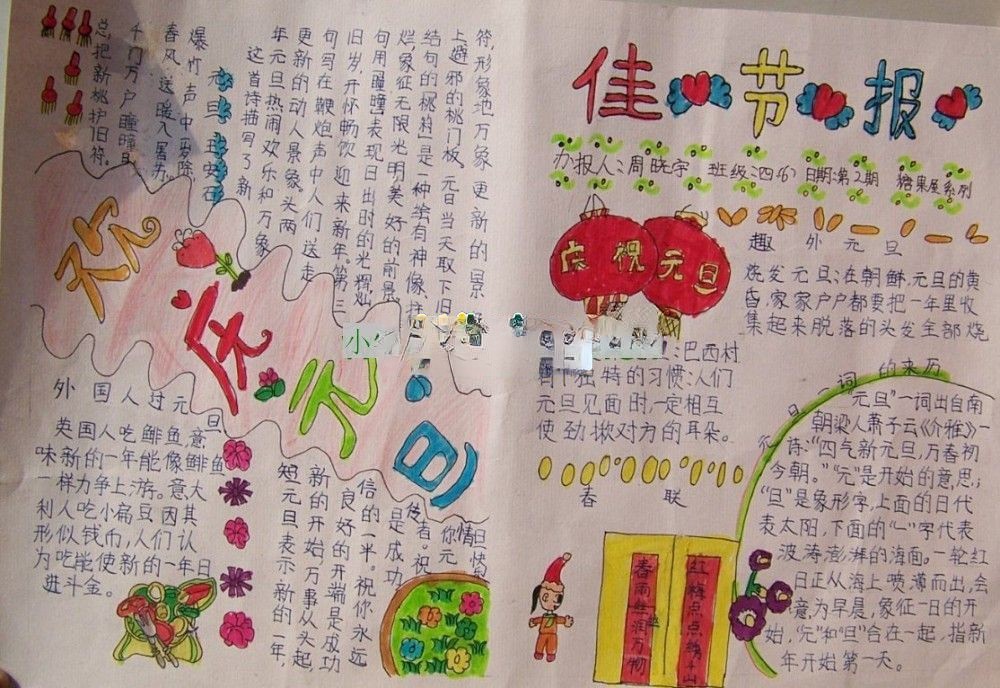 佳节报
办报人:周晓宇 班级:四(6) 日期:第2期 糖果屋系列
庆祝
元旦
趣外元旦
烧发元旦:在朝鲜,元旦的黄
昏,家家户户都要把一年里收
集起来脱落的头发全部烧
:巴西村
有个独特的习惯:人们
元旦见面时,一定相互
使劲揪对方的耳朵。
春联
春雨丝丝润万物
红梅点点绣千山
词的来历
元旦"一词出自南
朝梁人萧子云《介雅》一
诗:"四气新元旦,万春初
今朝。"元"是开始的意思;
"旦"是象形字,上面的日代
表太阳,下面的"一"字代表
波涛澎湃的海面。一轮红
日正从海上喷薄而出,会
意为早晨,象征一日的开
始,"元"和"旦"合在一起,指新
年开始第一天。
元旦 王安石
爆竹声中岁除
春风送暖入屠苏
千门万户曈曈日
总把新桃护旧符。
这首诗描写了新
年元旦热闹欢乐和万象
更新的动人景象,头两
句写在鞭炮声中人们送走
旧岁,开怀畅饮迎来新年。第三
句用"曈曈"表现日出时的光辉灿
烂,象征无限光明美好的前景
结句的"桃符"是一种绘有神像、挂
上避邪的桃门板,元日当天取下旧
符,形象地万象更新的景
祝庆元旦
外国人过元旦
英国人吃鲱鱼,意
味新的一年能像鲱鱼
一样力争上游。意大
利人吃小扁豆,因其
形似钱币,人们认
为吃能使新的一年日
进斗金。
短元旦表示新的一年,
新的开始万事从头起,
良好的开端是成功
信的一半。祝你永远
是成功
使者。祝
你元